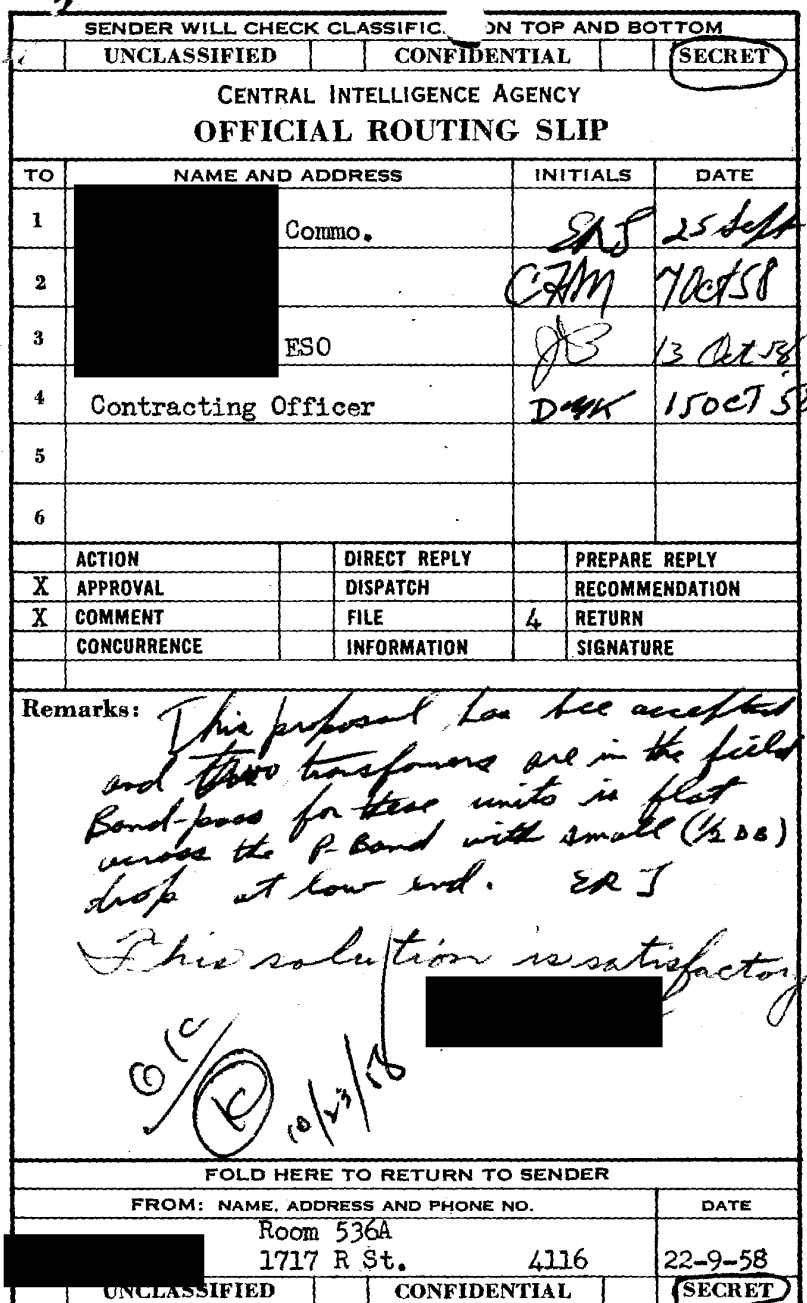 SENDER WILL CHECK CLASSIFIC ON TOP AND BOTTOM
UNCLASSIFIED CONFIDENTIAL SECRET
CENTRAL INTELLIGENCE AGENCY
OFFICIAL ROUTING SLIP
TO NAME AND ADDRESS INITIALS DATE
1 Commo. 25 Sept
2 CHM 7 Oct 58
3 ESO JB 13 Oct 58
4 Contracting Officer 15 OCT 58
5
6
ACTION DIRECT REPLY PREPARE REPLY
X APPROVAL DISPATCH RECOMMENDATION
X COMMENT FILE 4 RETURN
CONCURRENCE INFORMATION SIGNATURE
Remarks: This proposal has bee accepted
and two transfomers are in the field
Band-pass for these units is flat
across the P-Band with small (1/2 DB)
drop at low end. ERJ
This solution is satisfactory
10/23/58
FOLD HERE TO RETURN TO SENDER
FROM: NAME, ADDRESS AND PHONE NO. DATE
Room 536A
1717 R St. 4116 22-9-58
UNCLASSIFIED CONFIDENTIAL SECRET